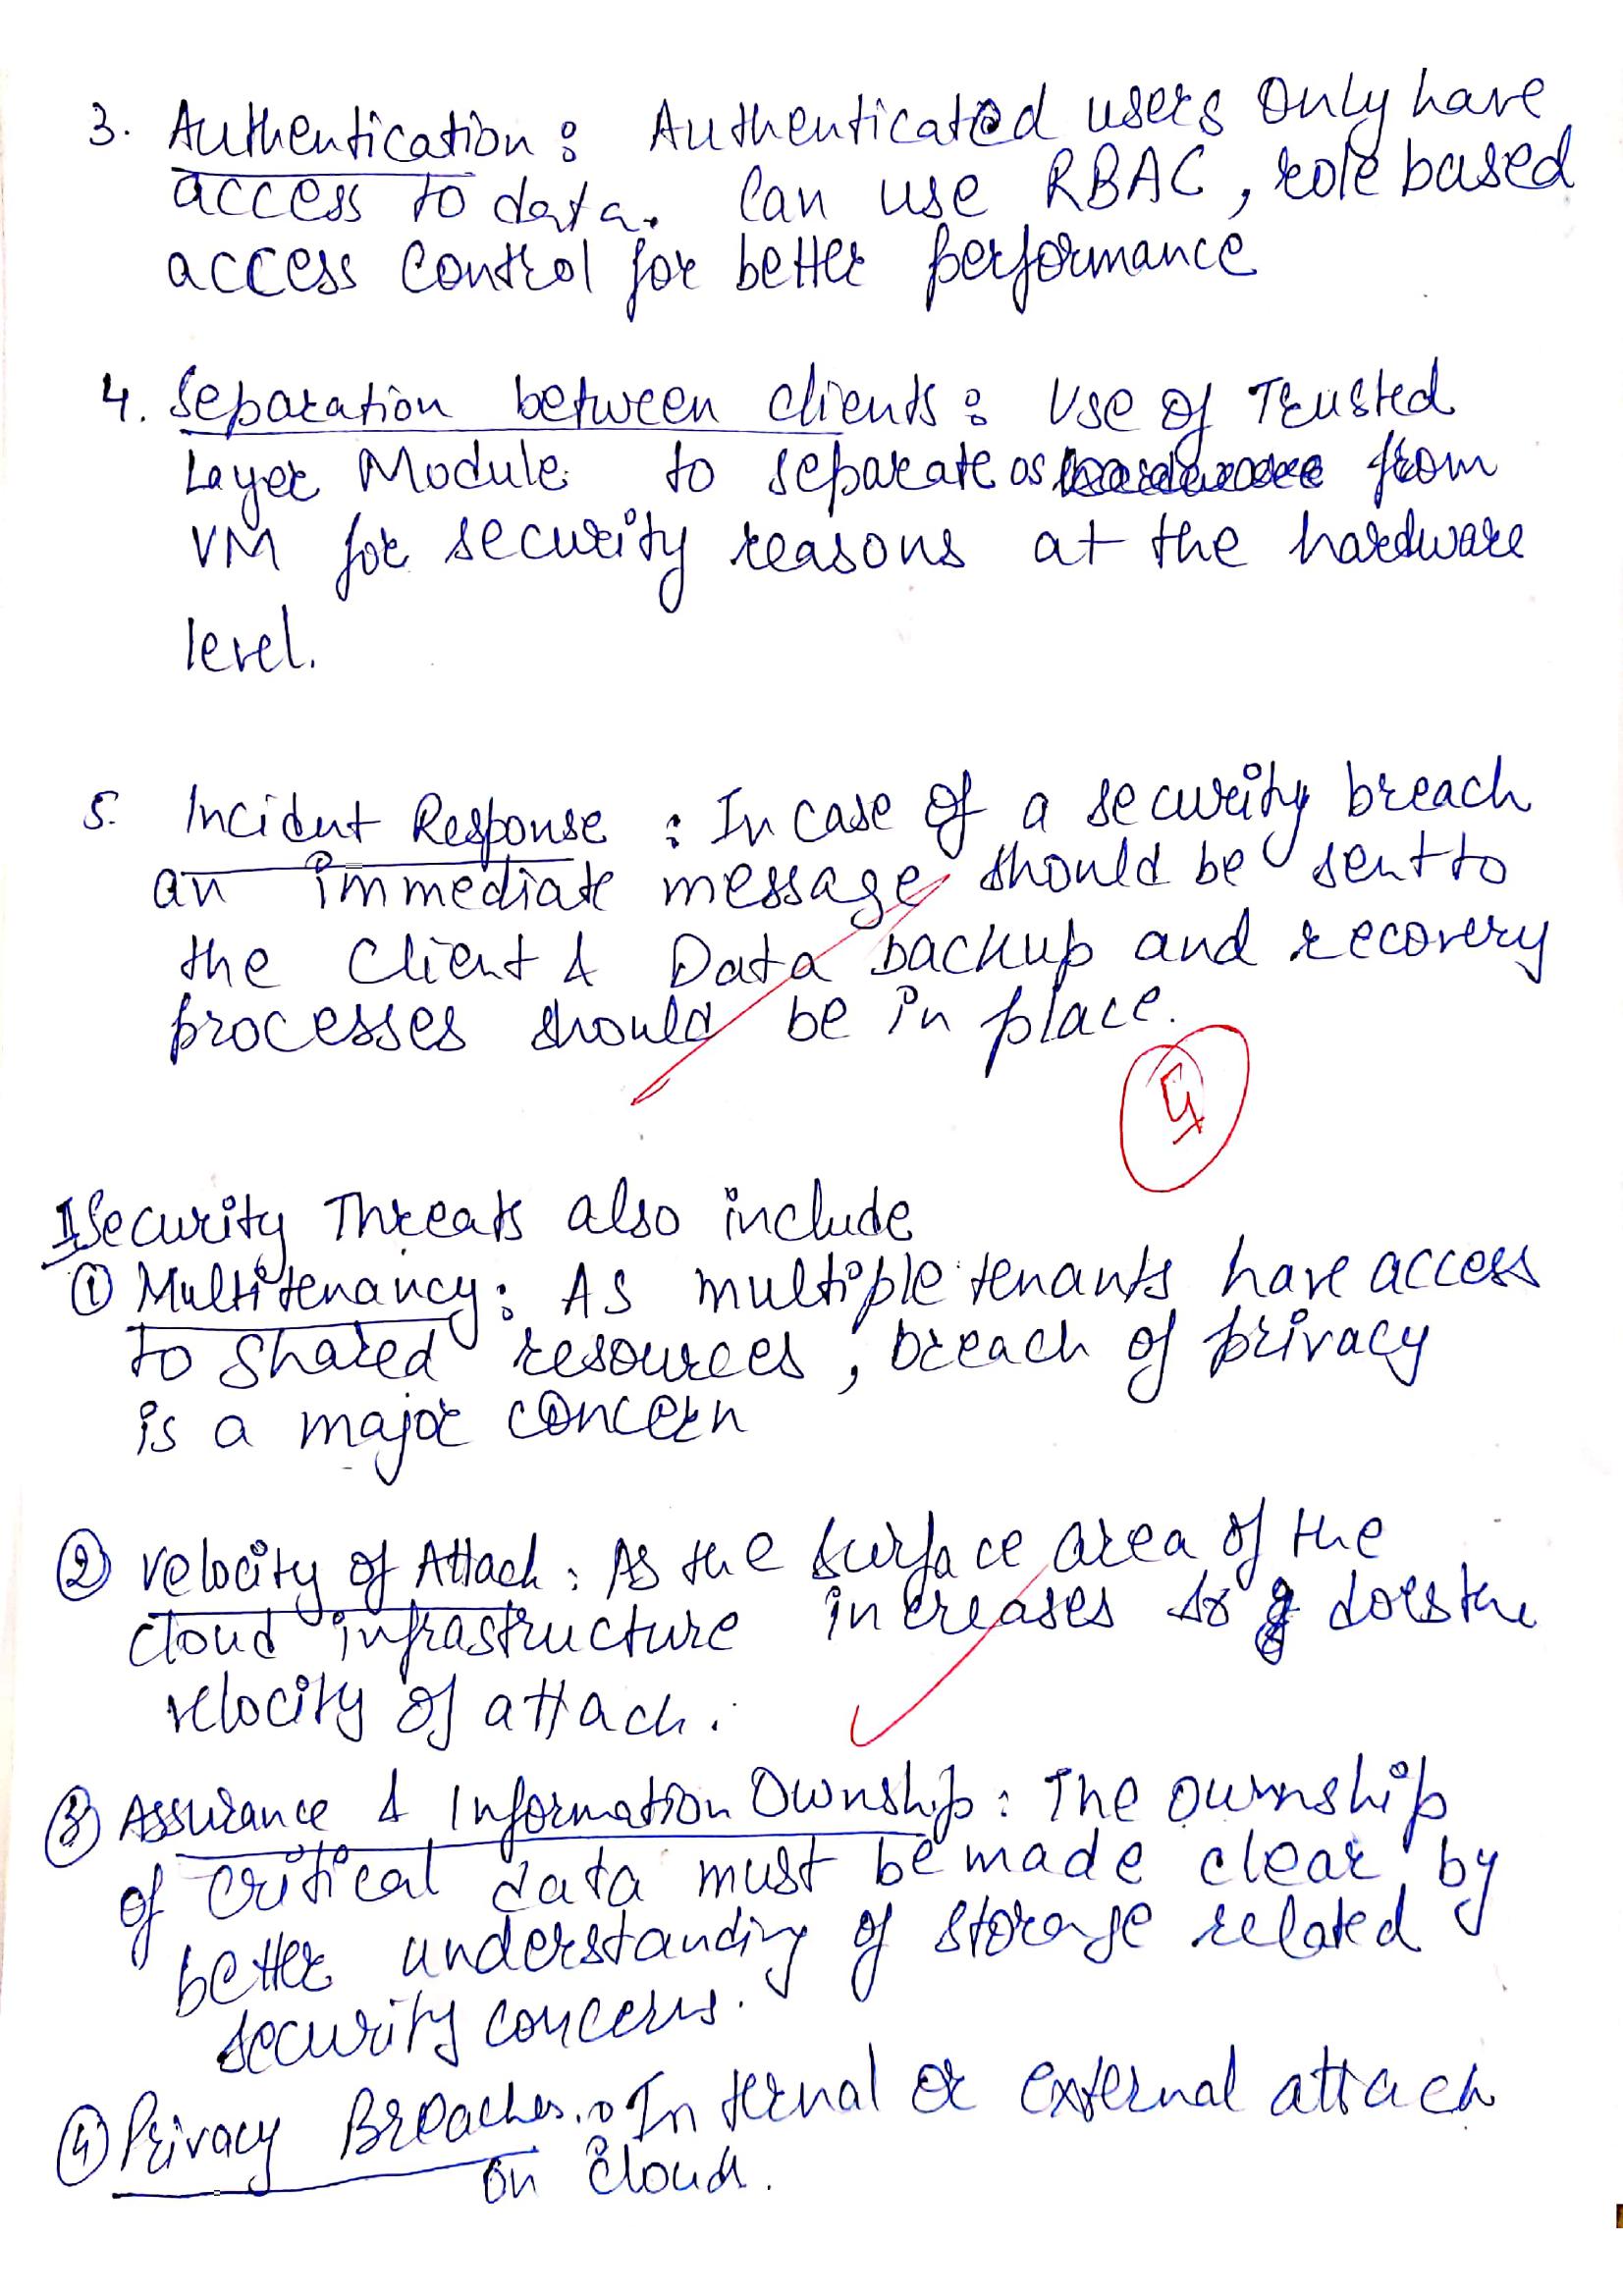 3. Authentication: Authenticated users Only have
access to data. Can use RBAC, role based
access Control for better performance
4. Separation between clients: Use of Trusted
Layer Module to separate os from
VM for security reasons at the hardware
level.
5. Incidut Response : In case of a security breach
an immediate message should be sent to
the Client & Data backup and recovery
processes should be in place.
4
II Security Threats also include
① Multitenancy: As multiple tenants have access
to shared resources, breach of privacy
is a major concern
② Velocity of Attack: As the surface area of the
cloud infrastructure increases so does the
velocity of attack.
③ Assurance & Information Ownship: The ownship
of critical data must be made clear by
better understanding of storage related
security concerns.
④ Privacy Breaches: Internal or external attack
on cloud.